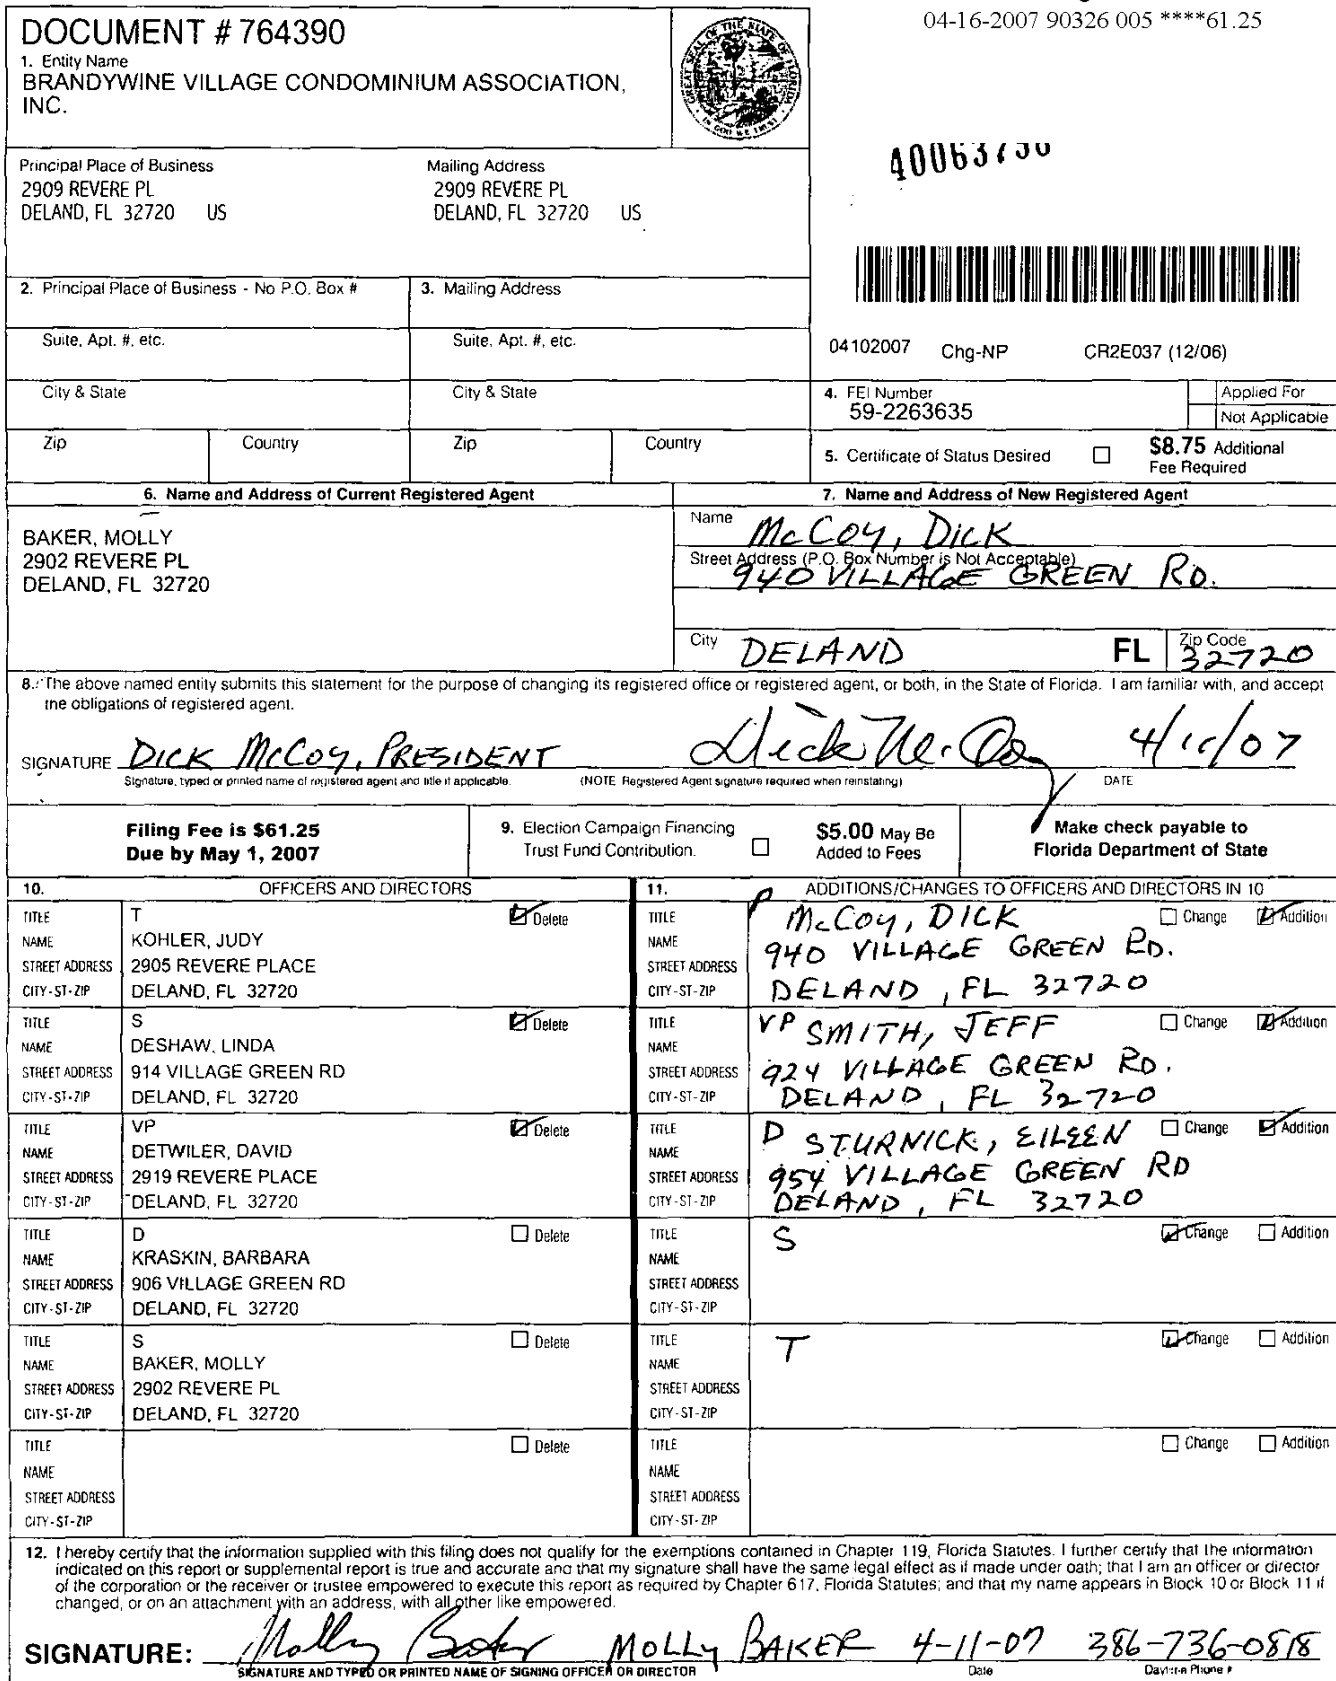 04-16-2007 90326 005 ****61.25
DOCUMENT # 764390
1. Entity Name
BRANDYWINE VILLAGE CONDOMINIUM ASSOCIATION,
INC.
GREAT SEAL OF THE STATE OF FLORIDA
IN GOD WE TRUST
Principal Place of Business
2909 REVERE PL
DELAND, FL 32720 US
Mailing Address
2909 REVERE PL
DELAND, FL 32720 US
2. Principal Place of Business - No P.O. Box #
3. Mailing Address
Suite, Apt. #, etc.
Suite, Apt. #, etc.
City & State
City & State
Zip Country Zip Country
04102007 Chg-NP CR2E037 (12/06)
4. FEI Number
59-2263635
Applied For
Not Applicable
5. Certificate of Status Desired
$8.75 Additional
Fee Required
6. Name and Address of Current Registered Agent
BAKER, MOLLY
2902 REVERE PL
DELAND, FL 32720
7. Name and Address of New Registered Agent
Name McCOY, DICK
Street Address (P.O. Box Number is Not Acceptable)
940 VILLAGE GREEN RD.
City DELAND FL Zip Code 32720
8. The above named entity submits this statement for the purpose of changing its registered office or registered agent, or both, in the State of Florida. I am familiar with, and accept
the obligations of registered agent.
SIGNATURE DICK McCOY, PRESIDENT Dick McCoy 4/11/07
Signature, typed or printed name of registered agent and title if applicable. (NOTE Registered Agent signature required when reinstating) DATE
Filing Fee is $61.25
Due by May 1, 2007
9. Election Campaign Financing
Trust Fund Contribution.
$5.00 May Be
Added to Fees
Make check payable to
Florida Department of State
10. OFFICERS AND DIRECTORS
TITLE T Delete
NAME KOHLER, JUDY
STREET ADDRESS 2905 REVERE PLACE
CITY-ST-ZIP DELAND, FL 32720
TITLE S Delete
NAME DESHAW, LINDA
STREET ADDRESS 914 VILLAGE GREEN RD
CITY-ST-ZIP DELAND, FL 32720
TITLE VP Delete
NAME DETWILER, DAVID
STREET ADDRESS 2919 REVERE PLACE
CITY-ST-ZIP DELAND, FL 32720
TITLE D Delete
NAME KRASKIN, BARBARA
STREET ADDRESS 906 VILLAGE GREEN RD
CITY-ST-ZIP DELAND, FL 32720
TITLE S Delete
NAME BAKER, MOLLY
STREET ADDRESS 2902 REVERE PL
CITY-ST-ZIP DELAND, FL 32720
TITLE Delete
NAME
STREET ADDRESS
CITY-ST-ZIP
11. ADDITIONS/CHANGES TO OFFICERS AND DIRECTORS IN 10
TITLE P McCOY, DICK Change Addition
NAME 940 VILLAGE GREEN RD.
STREET ADDRESS
CITY-ST-ZIP DELAND, FL 32720
TITLE VP SMITH, JEFF Change Addition
NAME
STREET ADDRESS 924 VILLAGE GREEN RD.
CITY-ST-ZIP DELAND, FL 32720
TITLE D STURNICK, EILEEN Change Addition
NAME
STREET ADDRESS 954 VILLAGE GREEN RD
CITY-ST-ZIP DELAND, FL 32720
TITLE S Change Addition
NAME
STREET ADDRESS
CITY-ST-ZIP
TITLE T Change Addition
NAME
STREET ADDRESS
CITY-ST-ZIP
TITLE Change Addition
NAME
STREET ADDRESS
CITY-ST-ZIP
12. I hereby certify that the information supplied with this filing does not qualify for the exemptions contained in Chapter 119, Florida Statutes. I further certify that the information
indicated on this report or supplemental report is true and accurate and that my signature shall have the same legal effect as if made under oath; that I am an officer or director
of the corporation or the receiver or trustee empowered to execute this report as required by Chapter 617, Florida Statutes; and that my name appears in Block 10 or Block 11 if
changed, or on an attachment with an address, with all other like empowered.
SIGNATURE: Molly Baker MOLLY BAKER 4-11-07 386-736-0818
SIGNATURE AND TYPED OR PRINTED NAME OF SIGNING OFFICER OR DIRECTOR Date Daytime Phone #